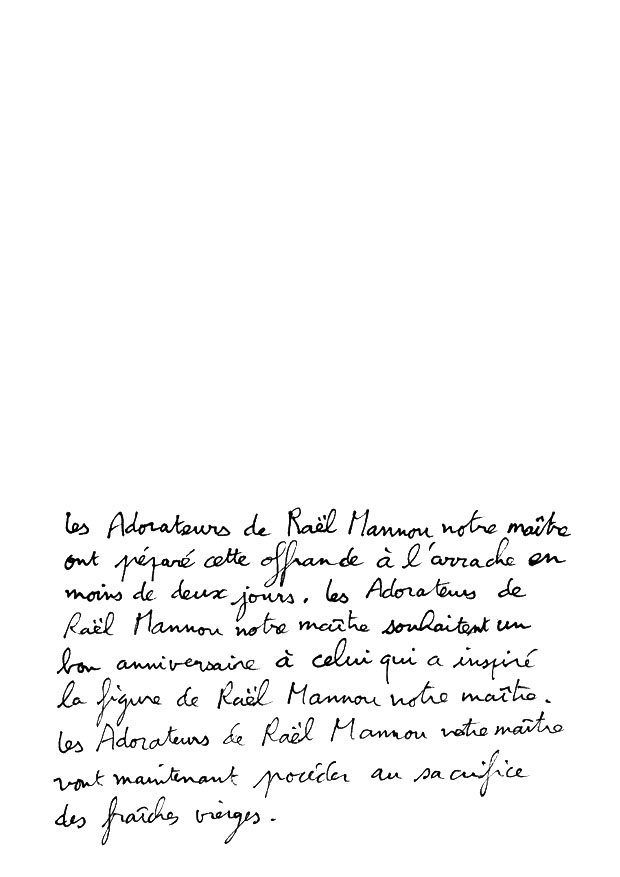 les Adorateurs de Raël Mannou notre maître
ont péparé cette offrande à l'arrache en
moins de deux jours. les Adorateurs de
Raël Mannou notre maître souhaitent un
bon anniversaire à celui qui a inspiré
la figure de Raël Mannou notre maître.
les Adorateurs de Raël Mannou notre maître
vont maintenant procéder au sacrifice
des fraîches vierges.